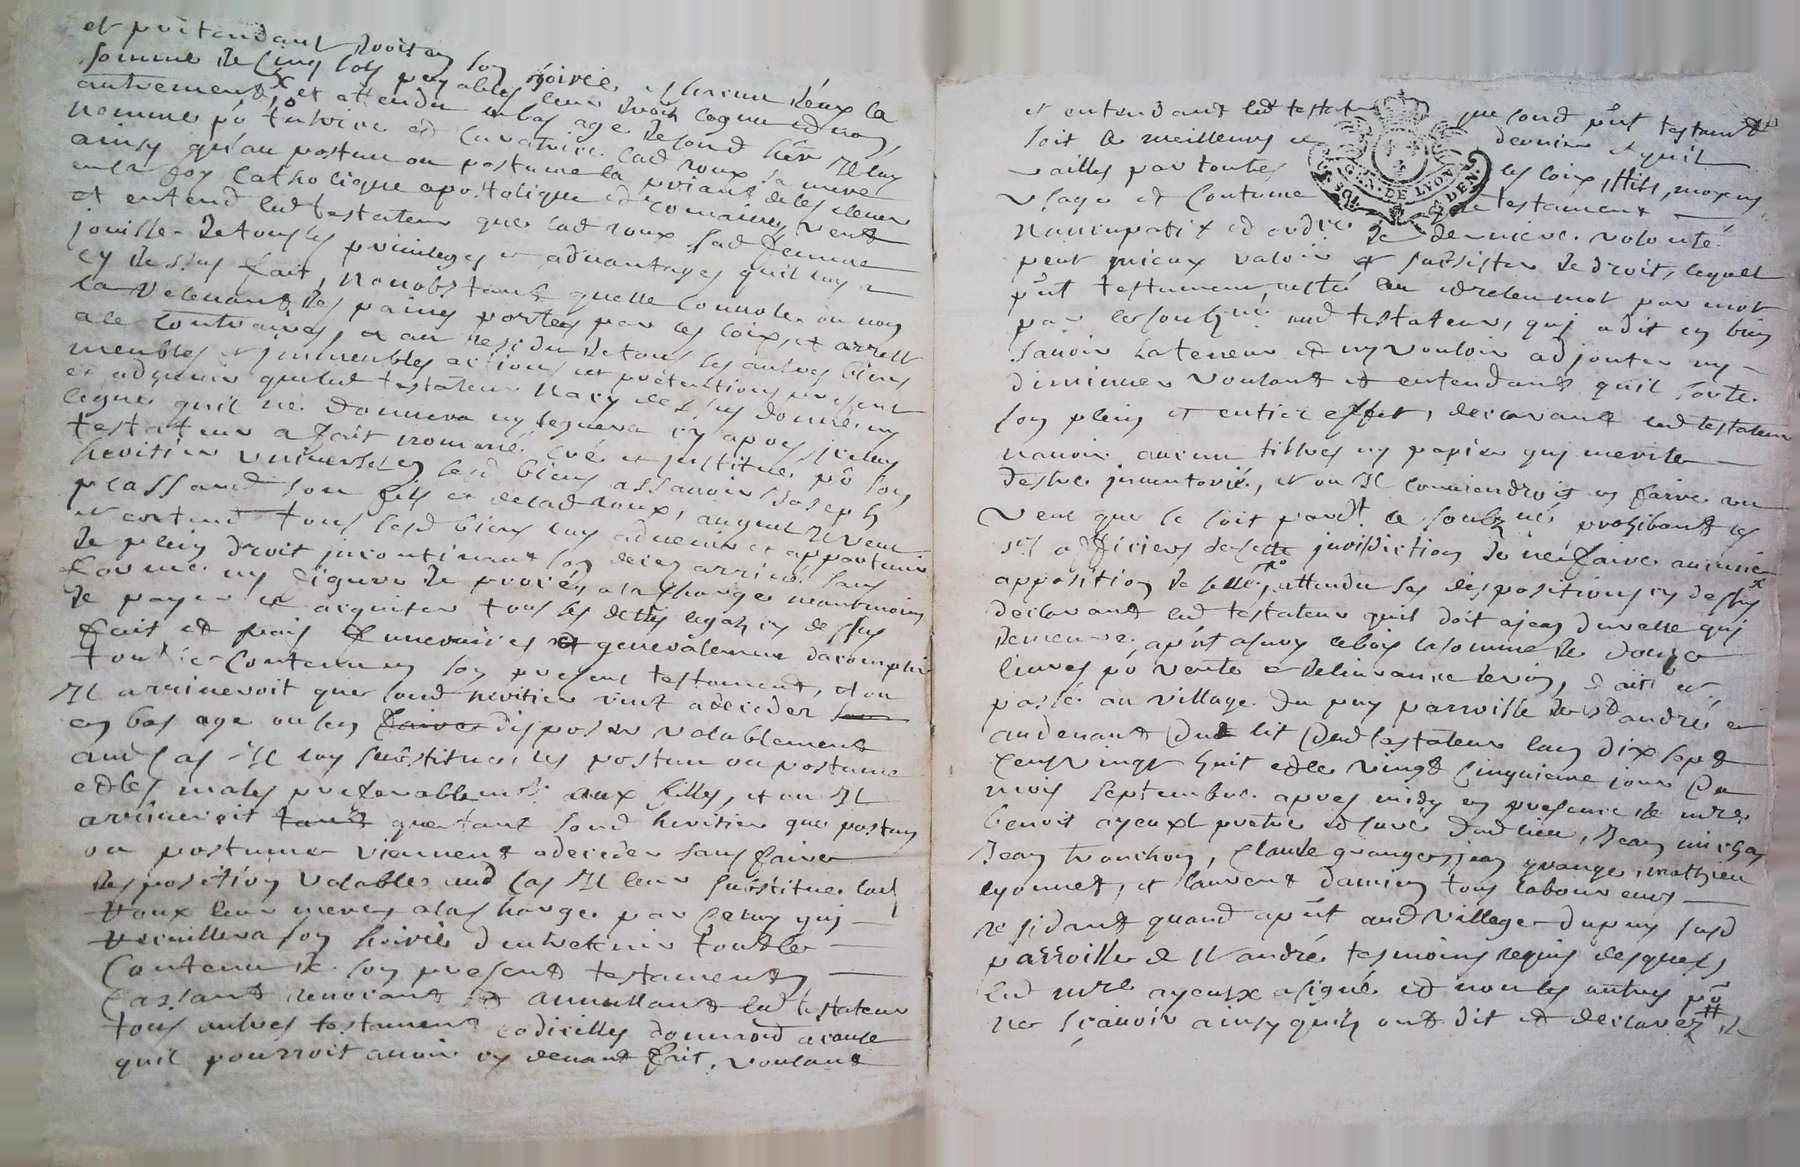 et prétendant droit en son hoirie, et chacun d'eux la
somme de cinq sols payables leur droit legué et non
autrement, et attendu le bas age de sond hér Il luy
nomme pô tutrice et curatrice lad roux sa mere
ainsy qu'au postum ou postume la priant de les elever
en la foy catholique apostolique et romaine, veut
et entend led testateur que lad roux sad femme
jouisse de tous les privileges et advantages quil luy a
cy dessus fait, nonobstant quelle convole ou non
la relevant des paines portées par les loix, et arrets
a le contraires, et au residu de tous les autres biens
meubles et immeubles actions et prétentions present
et advenir queled testateur n'a cy dessus donné, ny
legué quil ne donnera ny leguera cy apres, iceluy
testateur a fait nommé, créé et institué pô son
heritier universel en lesd biens assavoir Joseph
plassard son fils et de lad roux, auquel Il veut
et entend tous lesd biens luy advenir et appartenir
de plein droit incontinant son deces arrivé sans
forme ny figure de procés, a la charge neantmoins
de payer et acquiter tous ses dettes legats cy dessus
fait et frais funeraires et generalement d'accomplir
tout le contenu en son present testament, et ou
Il arriveroit que sond heritier vint a deceder
en bas age ou sen faire disposer valablement
aud cas Il luy substitue, les postum ou postume
et les males preferablemt aux filles, et ou Il
arriveroit tant que tant sond heritier que postum
ou postume viennent a deceder sans faire
disposition valable aud cas Il leur substitue lad
roux leur mere, a la charge par celuy qui
recuillera son hoirie d'entretenir tout le
contenu de son present testament,
cassant revocant et annullant led testateur
tous autres testament codicilles donnaõn a cause
quil pourroit avoir cy devant fait, voulant
et entendant led testateur que sond pn̂t testament
soit le meilleur et dernier et quil
vaille par toutes les loix, stils, moyens
usage et coutume de testament
noncupatif et ordre de derniere volonté
peut mieux valoir et subsister de droit, lequel
pn̂t testament, a été leu et releu mot par mot
par le soubzné aud testateur, quj a dit en bien
savoir la teneur et ny vouloir adjouter ny
diminuer voulant et entendant quil sorte
son plein et entier effet, declarant led testateur
navoir aucun tiltres ny papier quj merite
destre inventorié, et ou Il conviendroit en faire un
veut que ce soit pardt le soubzné prohibant les
srs officiers de cette jurisdiction de ne faire aucune
apposition de sellé, attendu les dispositions cy dessus
declarant led testateur quil doit a jean duvelle quj
demeure apn̂t a luy le bois la somme de douze
livres pô vente et delivrance de vin, fait et
passé au village du puy parroisse de st andré et
au devant du lit dud testateur lan dix sept
cens vingt huit et le vingt cinquieme jour du
mois septembre apres midy en presence de mre
benoit ayeuxt pretre et curé dud lieu, Jean michon
Jean tronchon, claude granger, jean grange, mathieu
lyonnet, et laurent damien tous laboureurs
residant quand apn̂t aud village du puy susd
parroisse de st andré tesmoins requis desquels
led mre ayeuxt a signé et non les autres pô
ne sçavoir ainsy quils ont dit et declarez de
GEN. DE LYON